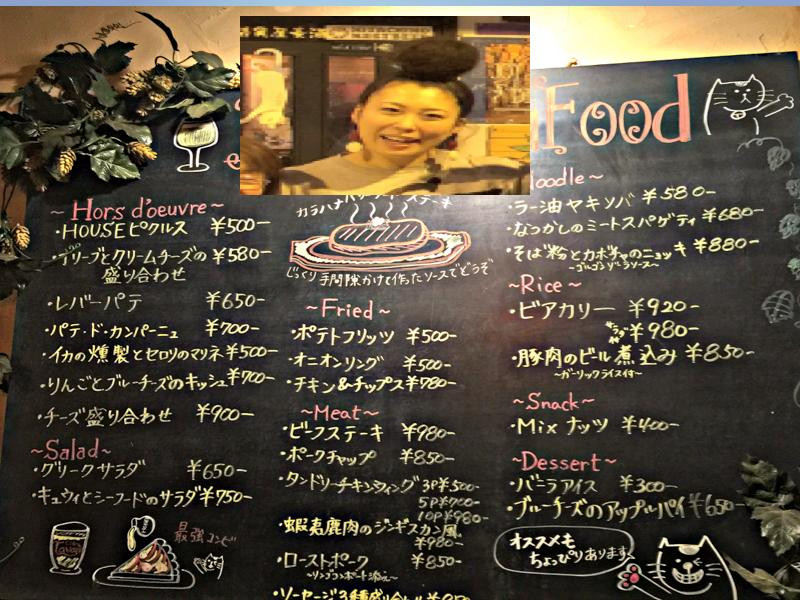 Food
~ Hors d'oeuvre ~
・HOUSEピクルス ¥500-
・オリーブとクリームチーズの ¥580-
盛り合わせ
・レバーパテ ¥650-
・パテ・ド・カンパーニュ ¥700-
・イカの燻製とセロリのマリネ ¥500-
・りんごとブルーチーズのキッシュ ¥700-
・チーズ盛り合わせ ¥900-
~Salad~
・グリークサラダ ¥650-
・キュウィとシーフードのサラダ ¥750-
最強コンビ
じっくり手間隙かけて作ったソースでどうぞ
~Fried~
・ポテトフリッツ ¥500-
・オニオンリング ¥500-
・チキン&チップス ¥780-
~Meat~
・ビーフステーキ ¥980-
・ポークチャップ ¥850-
・タンドリーチキンウィング 3P¥500-
5P¥700-
10P¥980-
・蝦夷鹿肉のジンギスカン風
¥980-
・ローストポーク ¥850-
~リンゴコンポート添え~
・ソーセージ3種盛り
Noodle~
・ラー油ヤキソバ ¥580-
・なつかしのミートスパゲティ ¥680-
・そば粉とカボチャのニョッキ ¥880-
~ゴルゴンゾーラソース~
~Rice~
・ビアカリー ¥920-
サラダ付 ¥980-
・豚肉のビール煮込み ¥850-
~ガーリックライス付~
~Snack~
・Mix ナッツ ¥400-
~Dessert~
・バニラアイス ¥300-
・ブルーチーズのアップルパイ ¥650-
オススメも
ちょっぴりあります